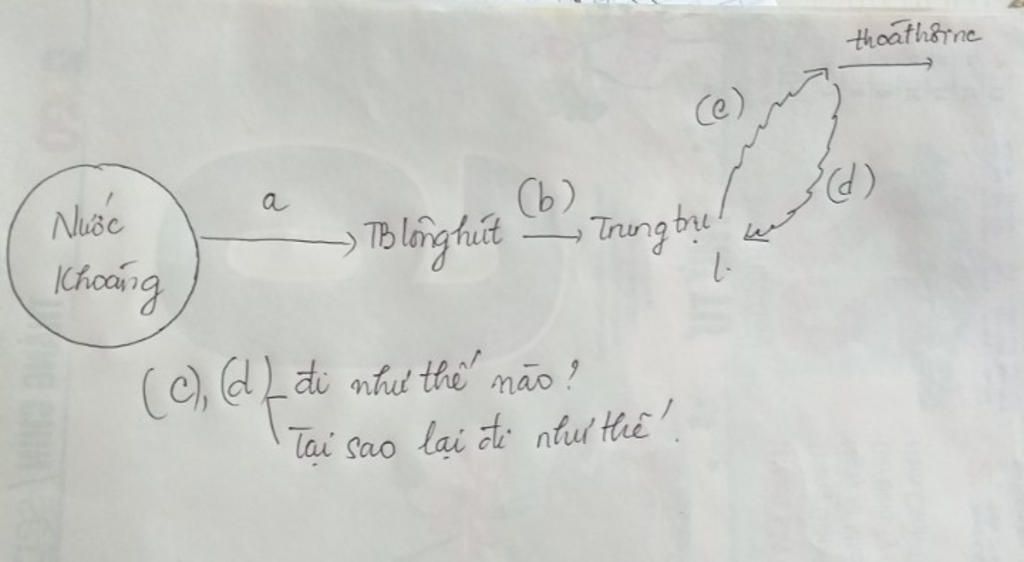 thoát hơi nc
(c)
(d)
a
(b)
Nước
Khoáng
TB lông hút
Trung trụ
(c), (d) đi như thế nào?
Tại sao lại đi như thế?